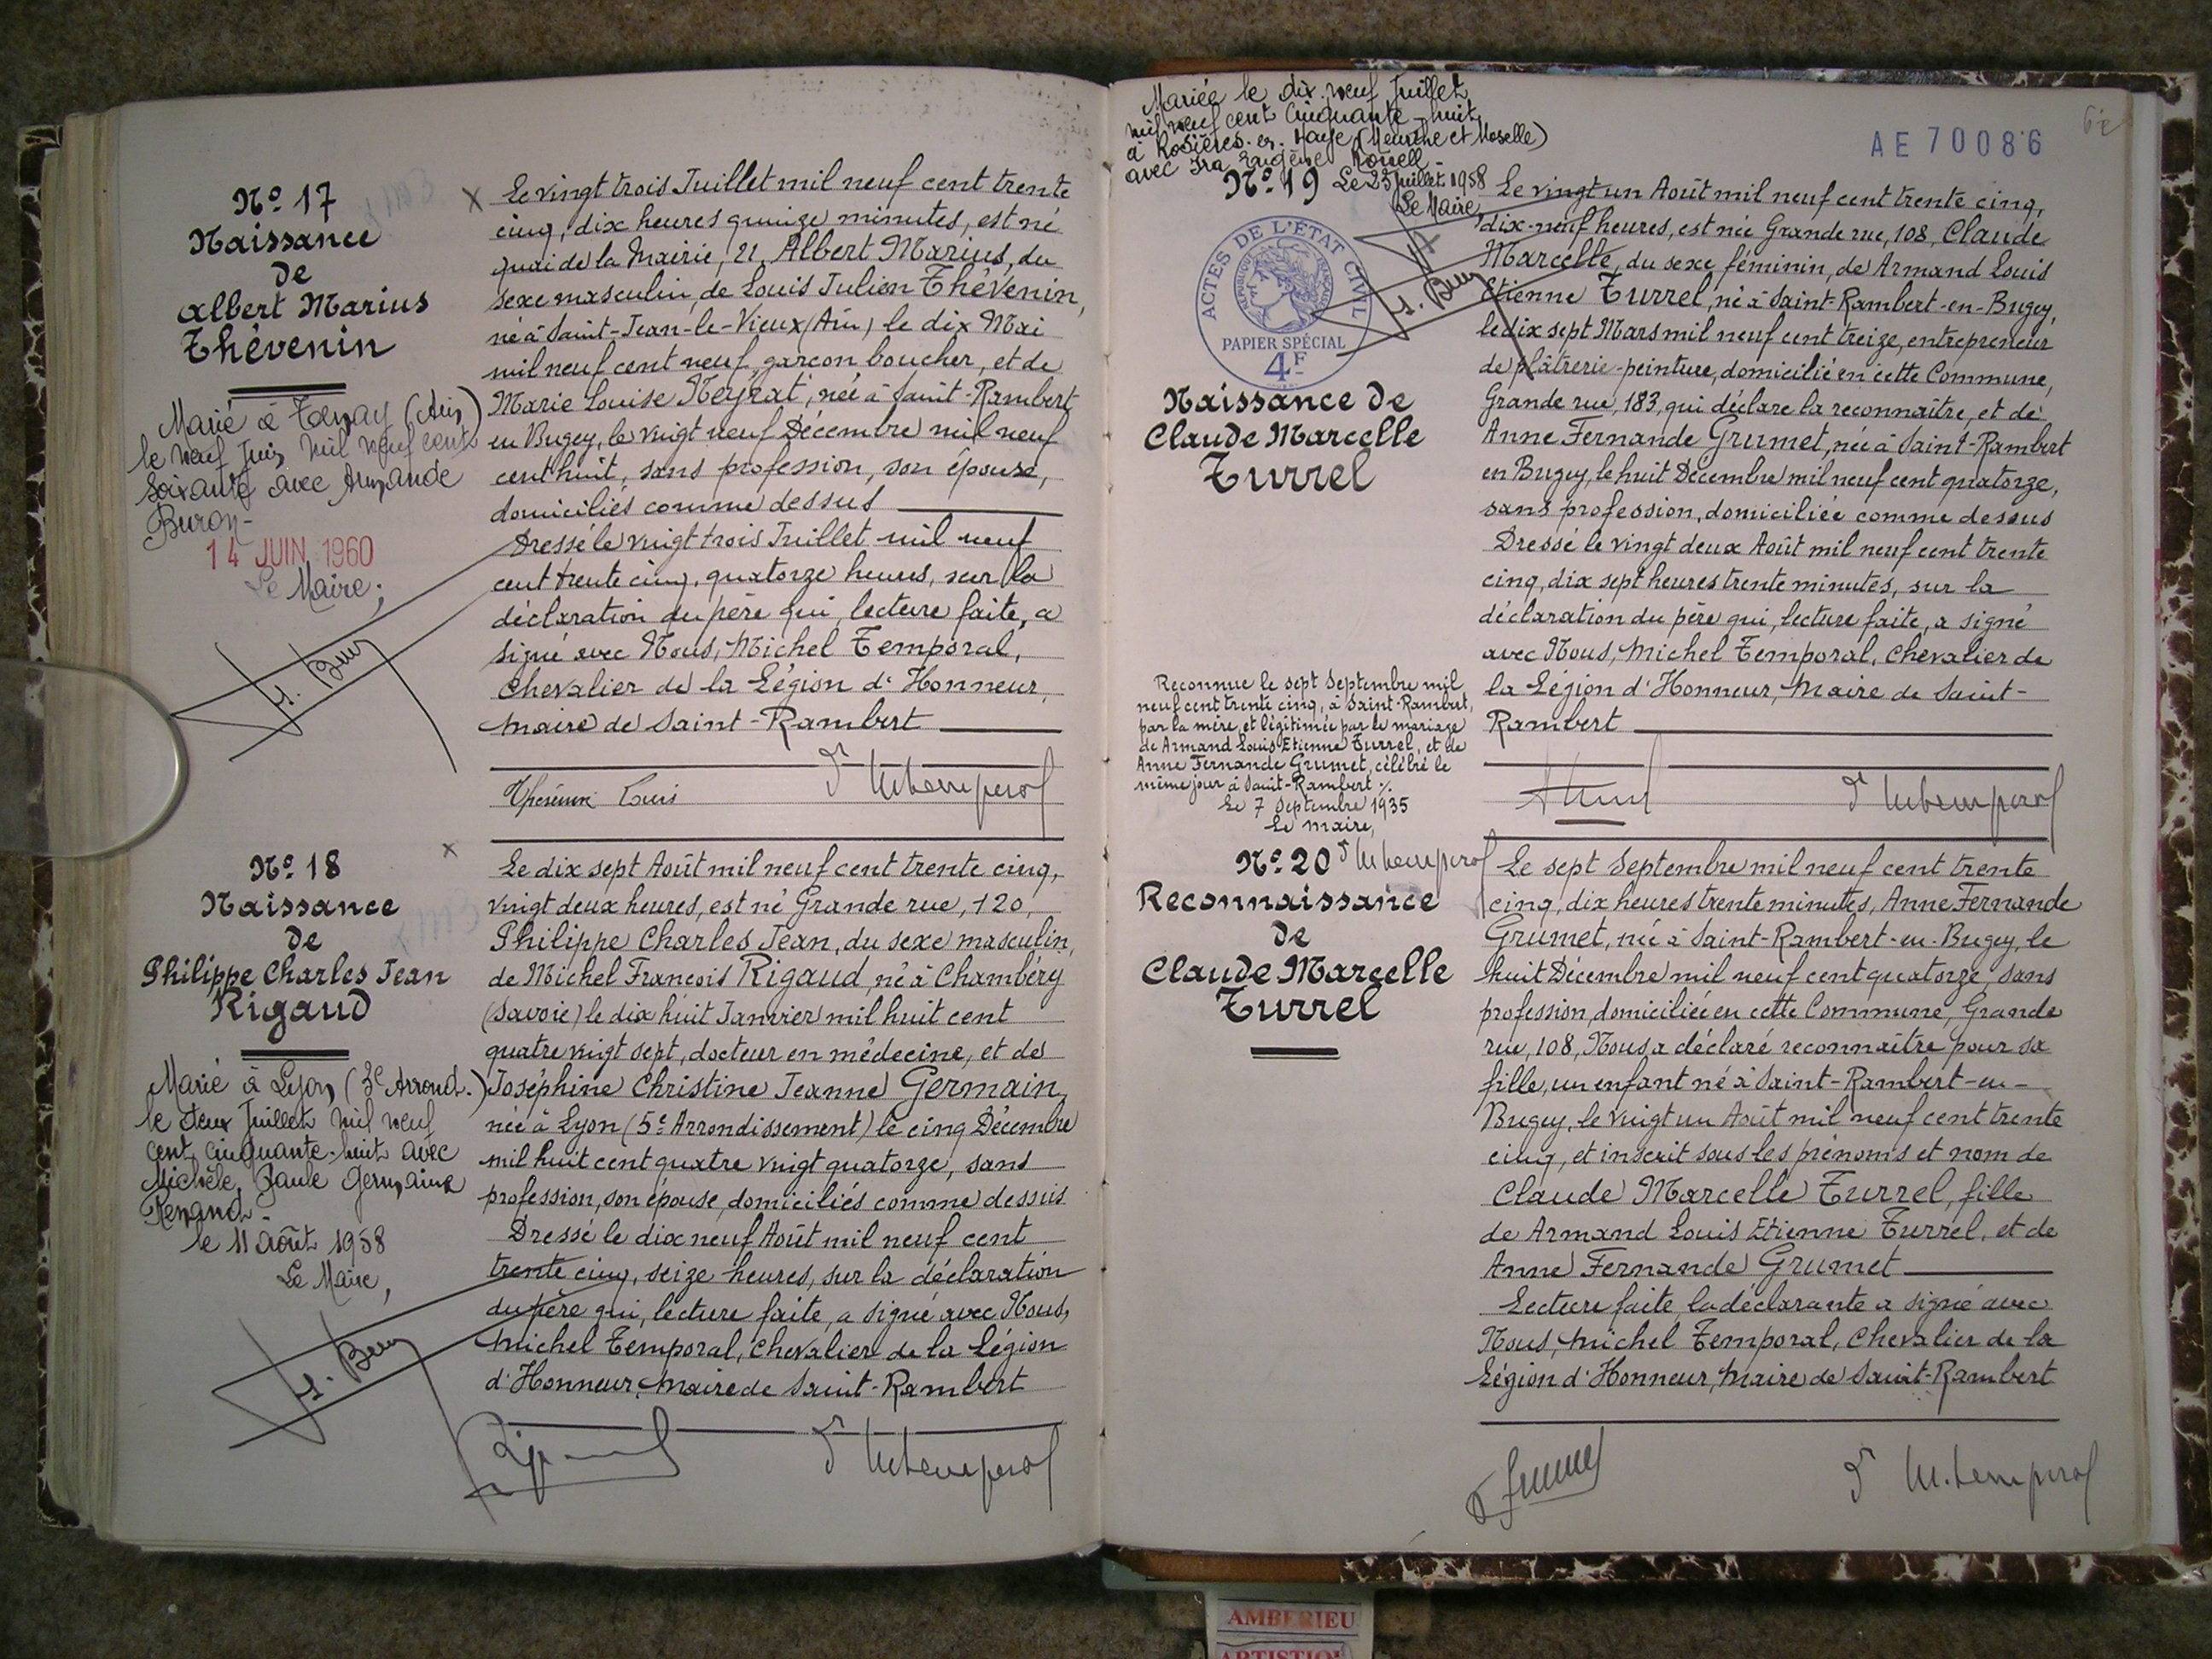 Nº 17
Naissance
de
Albert Marius
Thévenin
Marié à (Ain)
le neuf Juin mil neuf cent
soixante avec Armande
Buron-
14 JUIN 1960
Le Maire;
Le vingt trois Juillet mil neuf cent trente
cinq, dix heures quinze minutes, est né
quai de la Mairie, 21, Albert Marius, du
sexe masculin, de Louis Julien Thévenin,
né à Saint-Jean-le-Vieux (Ain) le dix Mai
mil neuf cent neuf, garçon boucher, et de
Marie Louise Neyrat, née à Saint-Rambert
en Bugey, le vingt neuf Décembre mil neuf
cent huit, sans profession, son épouse,
domiciliés comme dessus
Dressé le vingt trois Juillet mil neuf
cent trente cinq, quatorze heures, sur la
déclaration du père qui, lecture faite, a
signé avec Nous, Michel Temporal,
Chevalier de la Légion d'Honneur,
Maire de Saint-Rambert
Thévenin Louis Dr M Temporal
Nº 18
Naissance
de
Philippe Charles Jean
Rigaud
Marié à Lyon (3e Arrond.)
le deux Juillet mil neuf
cent cinquante-huit avec
Michèle, Paule Germaine
Renand-
le 11 Août 1958
Le Maire,
Le dix sept Août mil neuf cent trente cinq,
vingt deux heures, est né Grande rue, 120,
Philippe Charles Jean, du sexe masculin,
de Michel François Rigaud, né à Chambéry
(Savoie) le dix huit Janvier mil huit cent
quatre vingt sept, docteur en médecine, et de
Joséphine Christine Jeanne Germain,
née à Lyon (5e Arrondissement) le cinq Décembre
mil huit cent quatre vingt quatorze, sans
profession, son épouse, domiciliés comme dessus
Dressé le dix neuf Août mil neuf cent
trente cinq, seize heures, sur la déclaration
du père qui, lecture faite, a signé avec Nous,
Michel Temporal, Chevalier de la Légion
d'Honneur, Maire de Saint-Rambert
Dr M Temporal
Mariée le dix-neuf Juillet
mil neuf cent cinquante-huit
à Rosières-en-Haye (Meurthe et Moselle)
avec Ira Eugène
Le 23 Juillet 1958
Le Maire,
AE 70086
Nº 19
ACTES DE L'ÉTAT CIVIL
RÉPUBLIQUE FRANÇAISE
PAPIER SPÉCIAL
4F
Naissance de
Claude Marcelle
Turrel
Le vingt un Août mil neuf cent trente cinq,
dix-neuf heures, est née Grande rue, 108, Claude
Marcelle, du sexe féminin, de Armand Louis
Etienne Turrel, né à Saint-Rambert-en-Bugey,
le dix sept Mars mil neuf cent treize, entrepreneur
de plâtrerie-peinture, domicilié en cette Commune,
Grande rue, 183, qui déclare la reconnaître, et de
Anne Fernande Grumet, née à Saint-Rambert
en Bugey, le huit Décembre mil neuf cent quatorze,
sans profession, domiciliée comme dessus
Dressé le vingt deux Août mil neuf cent trente
cinq, dix sept heures trente minutes, sur la
déclaration du père qui, lecture faite, a signé
avec Nous, Michel Temporal, Chevalier de
la Légion d'Honneur, Maire de Saint-
Rambert
Dr M Temporal
Reconnue le sept Septembre mil
neuf cent trente cinq, à Saint-Rambert,
par la mère, et légitimée par le mariage
de Armand Louis Etienne Turrel, et de
Anne Fernande Grumet, célébré le
même jour à Saint-Rambert %.
Le 7 Septembre 1935
Le Maire,
Dr M Temporal
Nº 20
Reconnaissance
de
Claude Marcelle
Turrel
Le sept Septembre mil neuf cent trente
cinq, dix heures trente minutes, Anne Fernande
Grumet, née à Saint-Rambert-en-Bugey, le
huit Décembre mil neuf cent quatorze, sans
profession, domiciliée en cette Commune, Grande
rue, 108, Nous a déclaré reconnaître pour sa
fille, un enfant né à Saint-Rambert-en-
Bugey, le vingt un Août mil neuf cent trente
cinq, et inscrit sous les prénoms et nom de
Claude Marcelle Turrel, fille
de Armand Louis Etienne Turrel, et de
Anne Fernande Grumet
Lecture faite, la déclarante a signé avec
Nous, Michel Temporal, Chevalier de la
Légion d'Honneur, Maire de Saint-Rambert
Dr M. Temporal
AMBERIEU